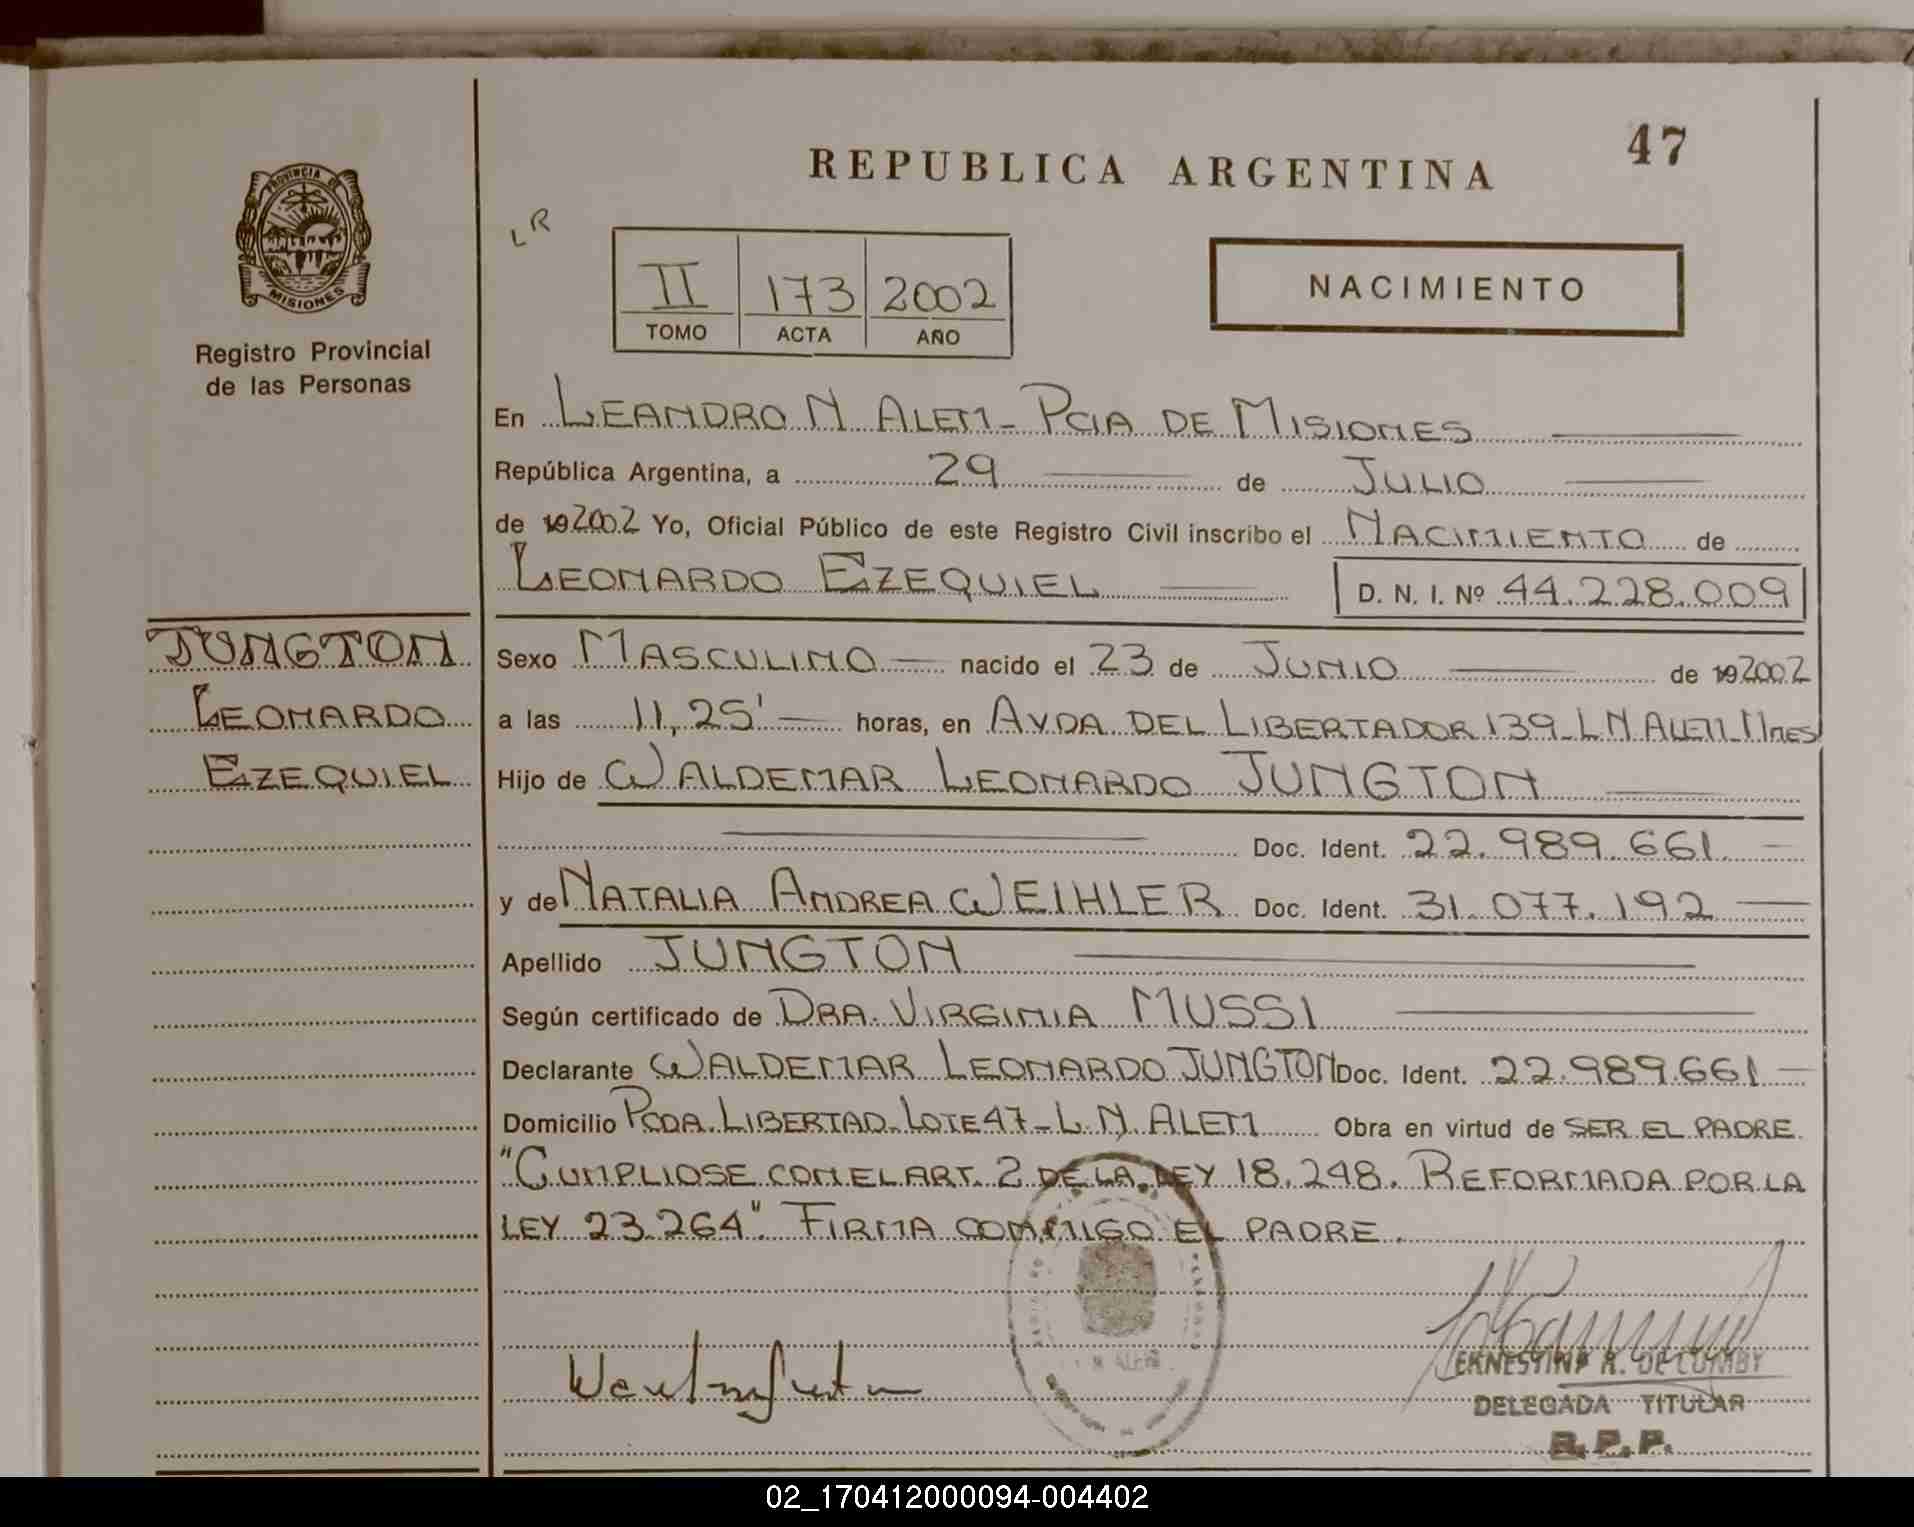 REPUBLICA ARGENTINA
47
PROVINCIA DE
MISIONES
Registro Provincial
de las Personas
LR
II 173 2002
TOMO ACTA AÑO
NACIMIENTO
En LEANDRO N. ALEM - PCIA DE MISIONES
República Argentina, a 29 de JULIO
de 192002 Yo, Oficial Público de este Registro Civil inscribo el NACIMIENTO de
LEONARDO EZEQUIEL D. N. I. Nº 44.228.009
JUNGTON
LEONARDO
EZEQUIEL
Sexo MASCULINO nacido el 23 de JUNIO de 192002
a las 11,25' horas, en AVDA DEL LIBERTADOR 139 - L N ALEM - Mnes
Hijo de WALDEMAR LEONARDO JUNGTON
Doc. Ident. 22.989.661
y de NATALIA ANDREA WEIHLER Doc. Ident. 31.077.192
Apellido JUNGTON
Según certificado de DRA. VIRGINIA MUSSI
Declarante WALDEMAR LEONARDO JUNGTON Doc. Ident. 22.989.661
Domicilio PCDA. LIBERTAD - LOTE 47 - L. N. ALEM Obra en virtud de SER EL PADRE
"CUMPLIOSE CON EL ART. 2 DE LA LEY 18.248. REFORMADA POR LA
LEY 23.264". FIRMA CONMIGO EL PADRE.
N ALEM
ERNESTINA R. DE LUMBY
DELEGADA TITULAR
R.P.P.
02_170412000094-004402